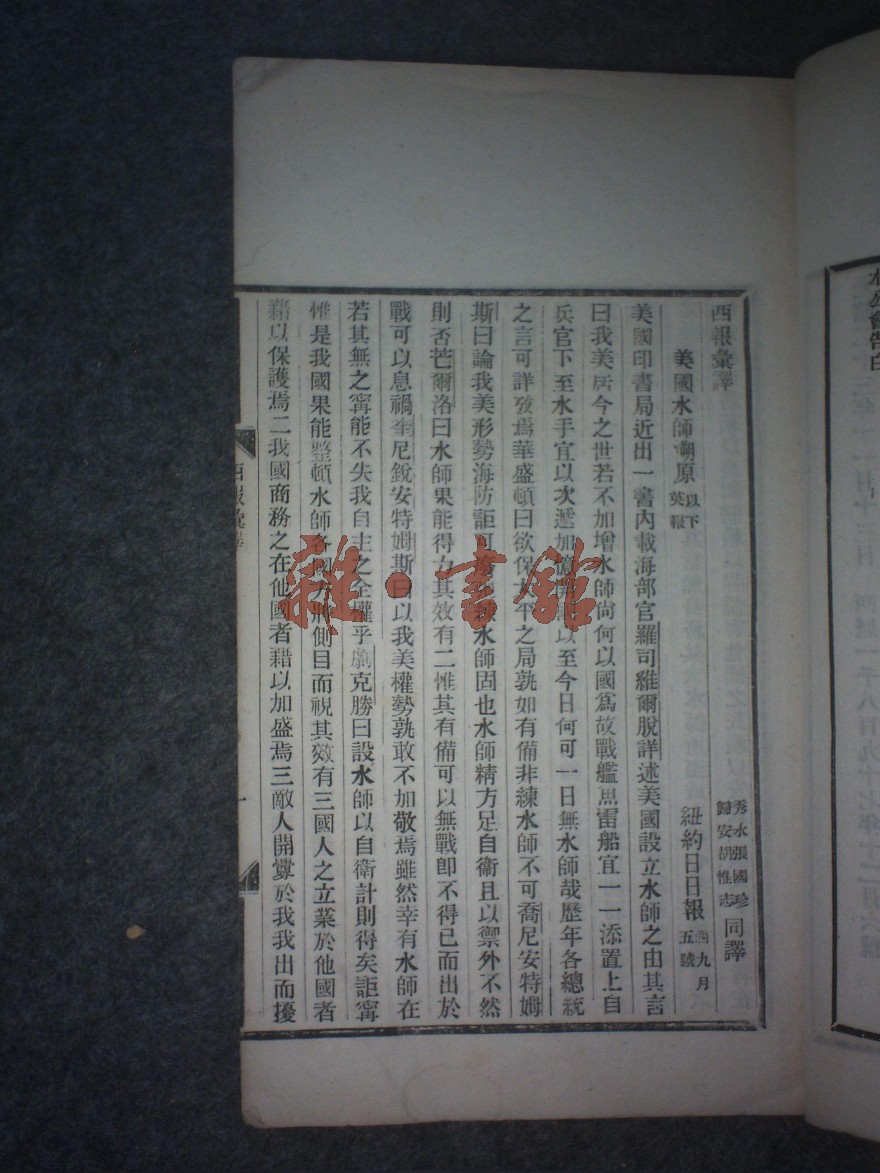 西報彙譯
秀水張國珍
歸安胡惟志
同譯
美國水師溯原
以下
英報
紐約日日報
西九月
五號
美國印書局近出一書內載海部官羅司維爾脫詳述美國設立水師之由其言
曰我美居今之世若不加增水師尙何以國爲故戰艦魚雷船宜一一添置上自
兵官下至水手宜以次遞加溯開國以至今日何可一日無水師哉歷年各總統
之言可詳攷焉華盛頓曰欲保太平之局孰如有備非練水師不可喬尼安特姆
斯曰論我美形勢海防詎可水師固也水師精方足自衞且以禦外不然
則否芒爾洛曰水師果能得力其效有二惟其有備可以無戰卽不得已而出於
戰可以息禍奎尼銳安特姆斯曰以我美權勢孰敢不加敬焉雖然幸有水師在
若其無之甯能不失我自主之全權乎克勝曰設水師以自衞計則得矣詎甯
惟是我國果能整頓水師各國方將側目而視其效有三國人之立業於他國者
藉以保護焉二我國商務之在他國者藉以加盛焉三敵人開釁於我我出而擾
西報彙譯
一
本公會告白
雜·書館